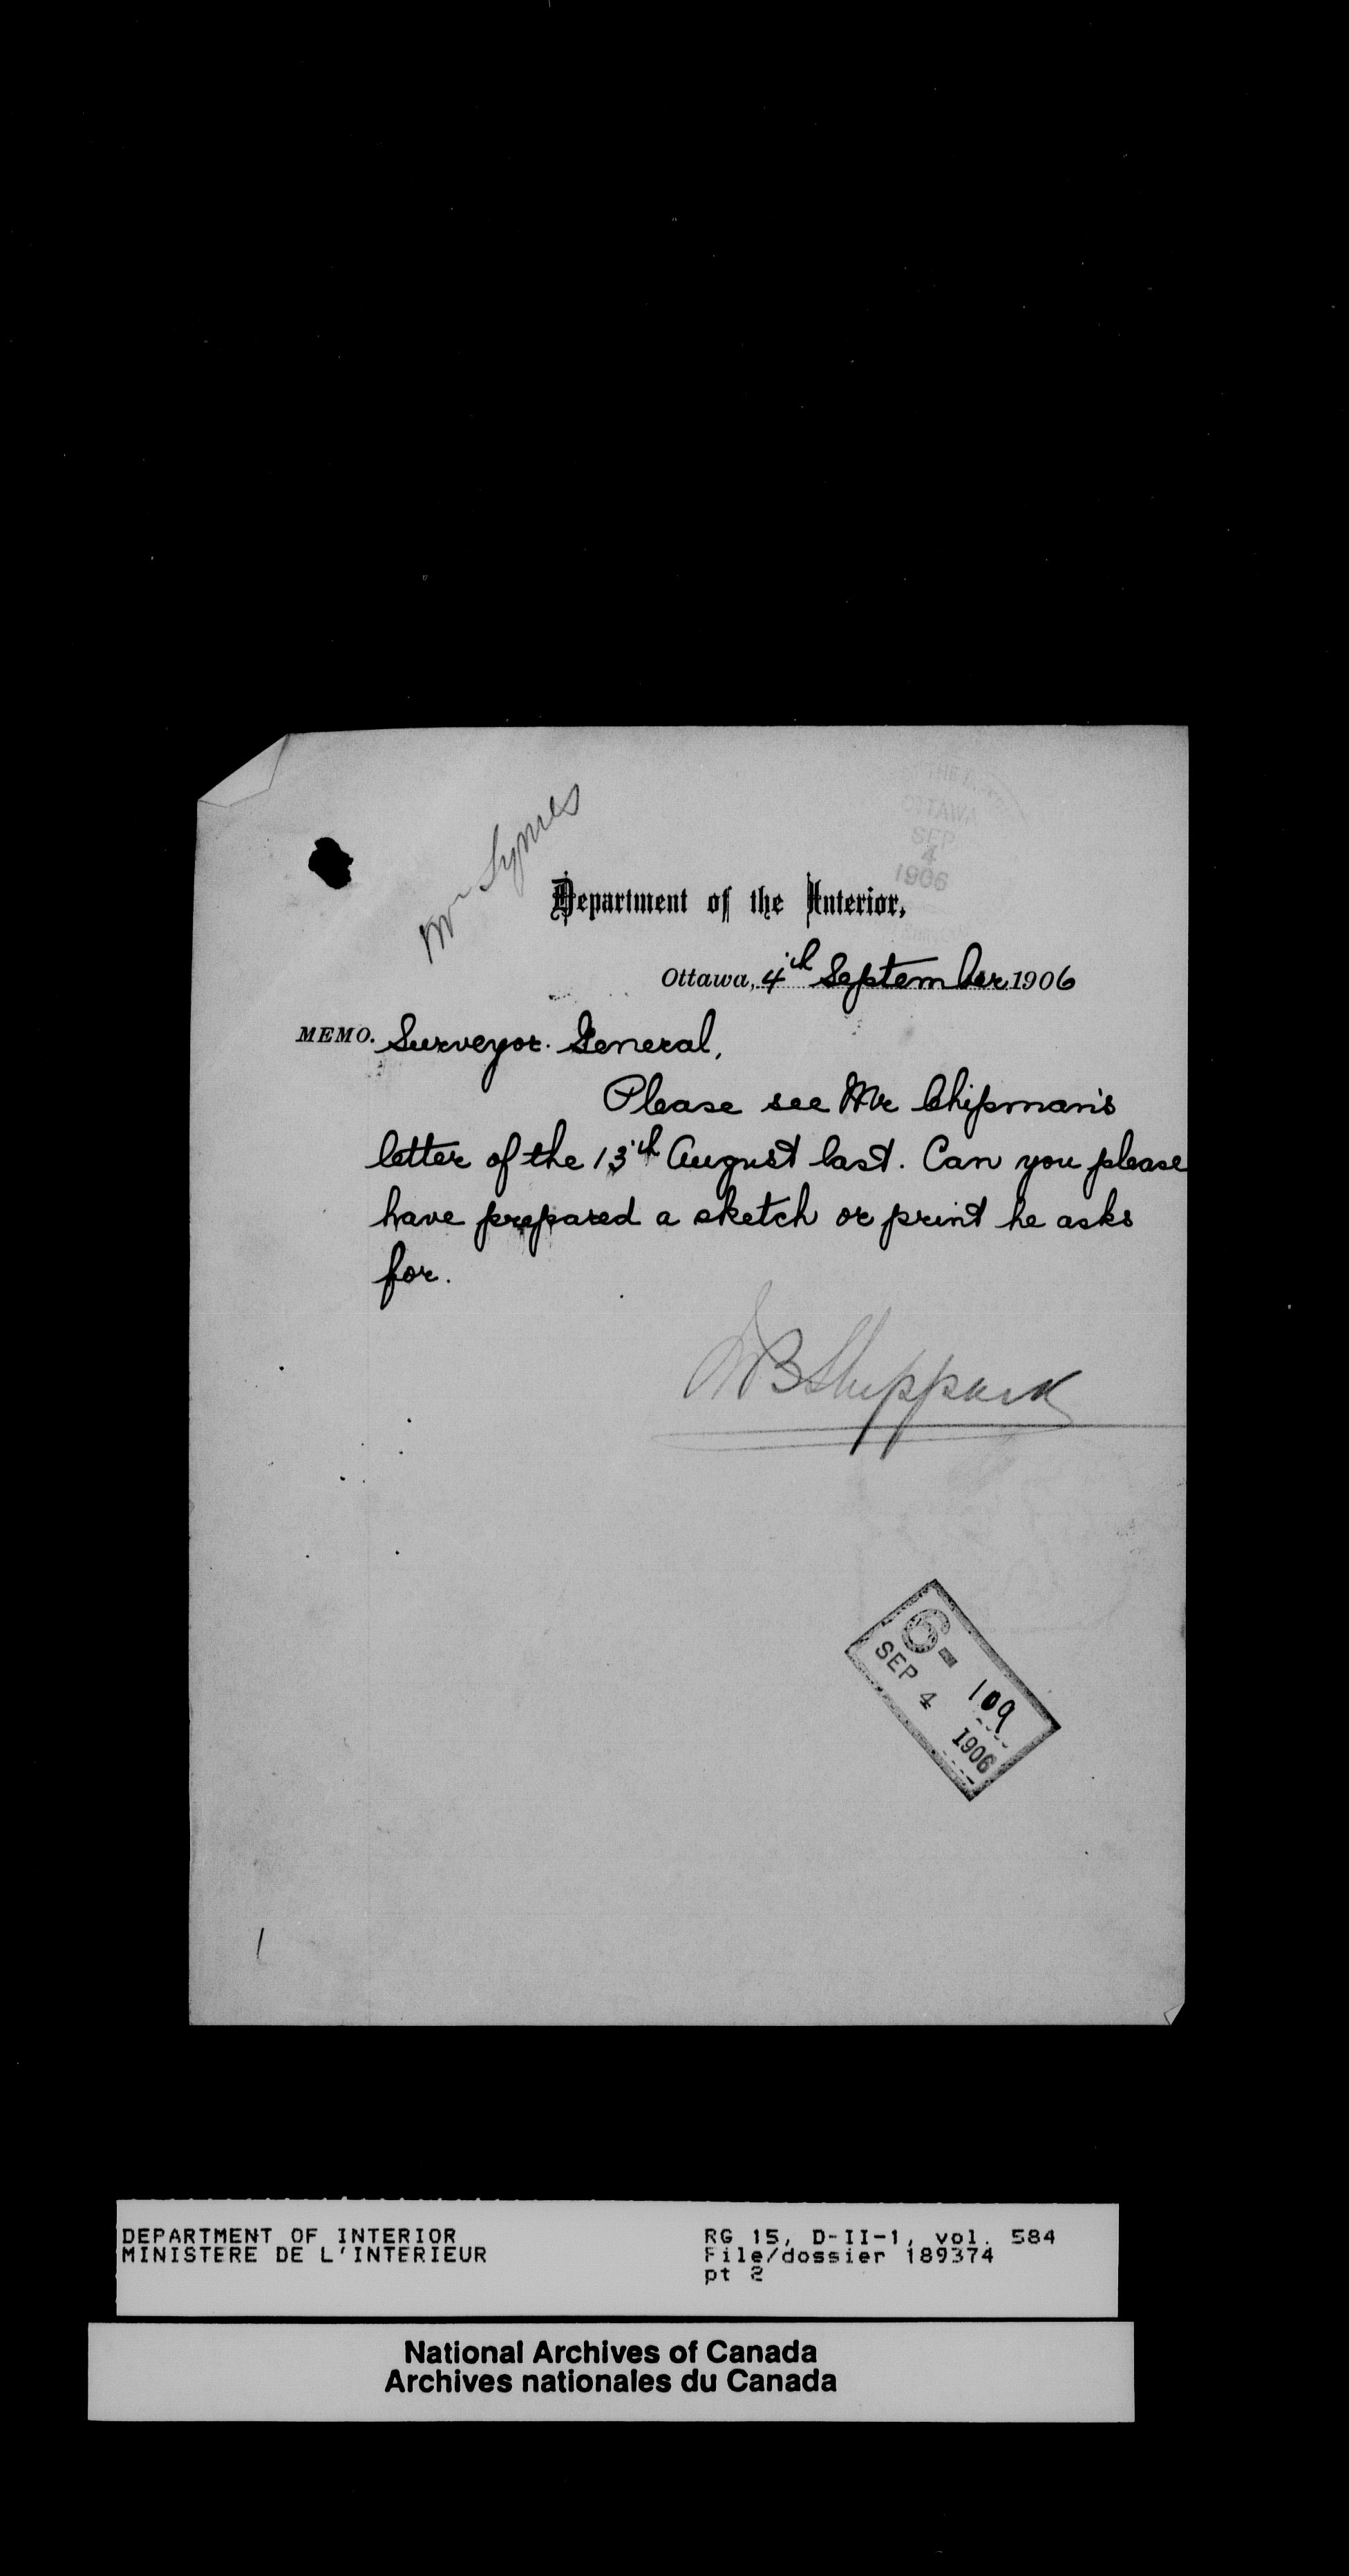 Mr Symes
OTTAWA
SEP
4
1906
Department of the Interior,
Ottawa, 4th September 1906
MEMO. Surveyor General,
Please see Mr Chipman's
letter of the 13th August last. Can you please
have prepared a sketch or print he asks
for.
Sheppard
6- 109
SEP 4 1906
DEPARTMENT OF INTERIOR
MINISTERE DE L'INTERIEUR
RG 15, D-II-1, vol. 584
File/dossier 189374
pt 2
National Archives of Canada
Archives nationales du Canada